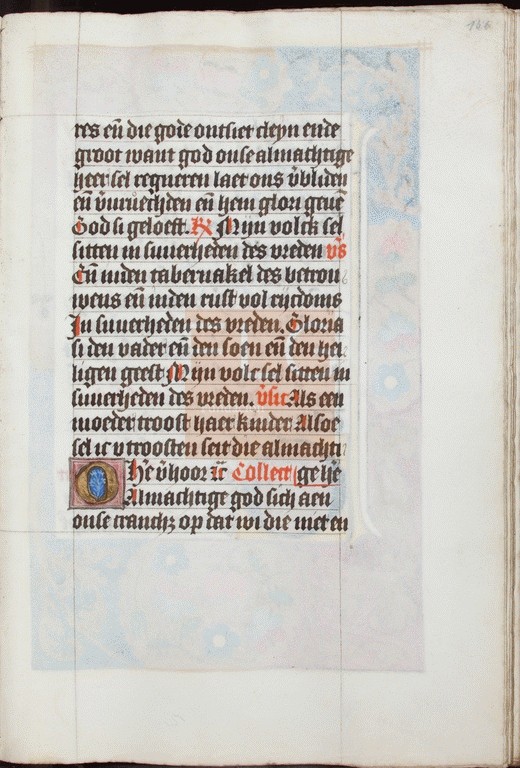 146
res eñ die gode ontsiet cleyn ende
groot want god onse almachtige
heer sel regneren laet ons v̄bliden
eñ v̄uruechden eñ hem glori geuē
God si geloeft. R̄ Mijn volck sel
sitten in suuerheden des vreden vs̄
Eñ in den tabernakel des betrou
wens eñ in den rust vol rijcdoms
In suuerheden des vreden. Gloria
si den vader eñ den soen eñ den hei
ligen geest Mijn volc sel sitten in
suuerheden des vreden. v̄sic Als een
moeder troost haer kinder Alsoe
sel ic v troosten seit die almachti
O He v̄hoor Collect ge he
Almachtige god sich aen
onse cranch op dat wi die met en